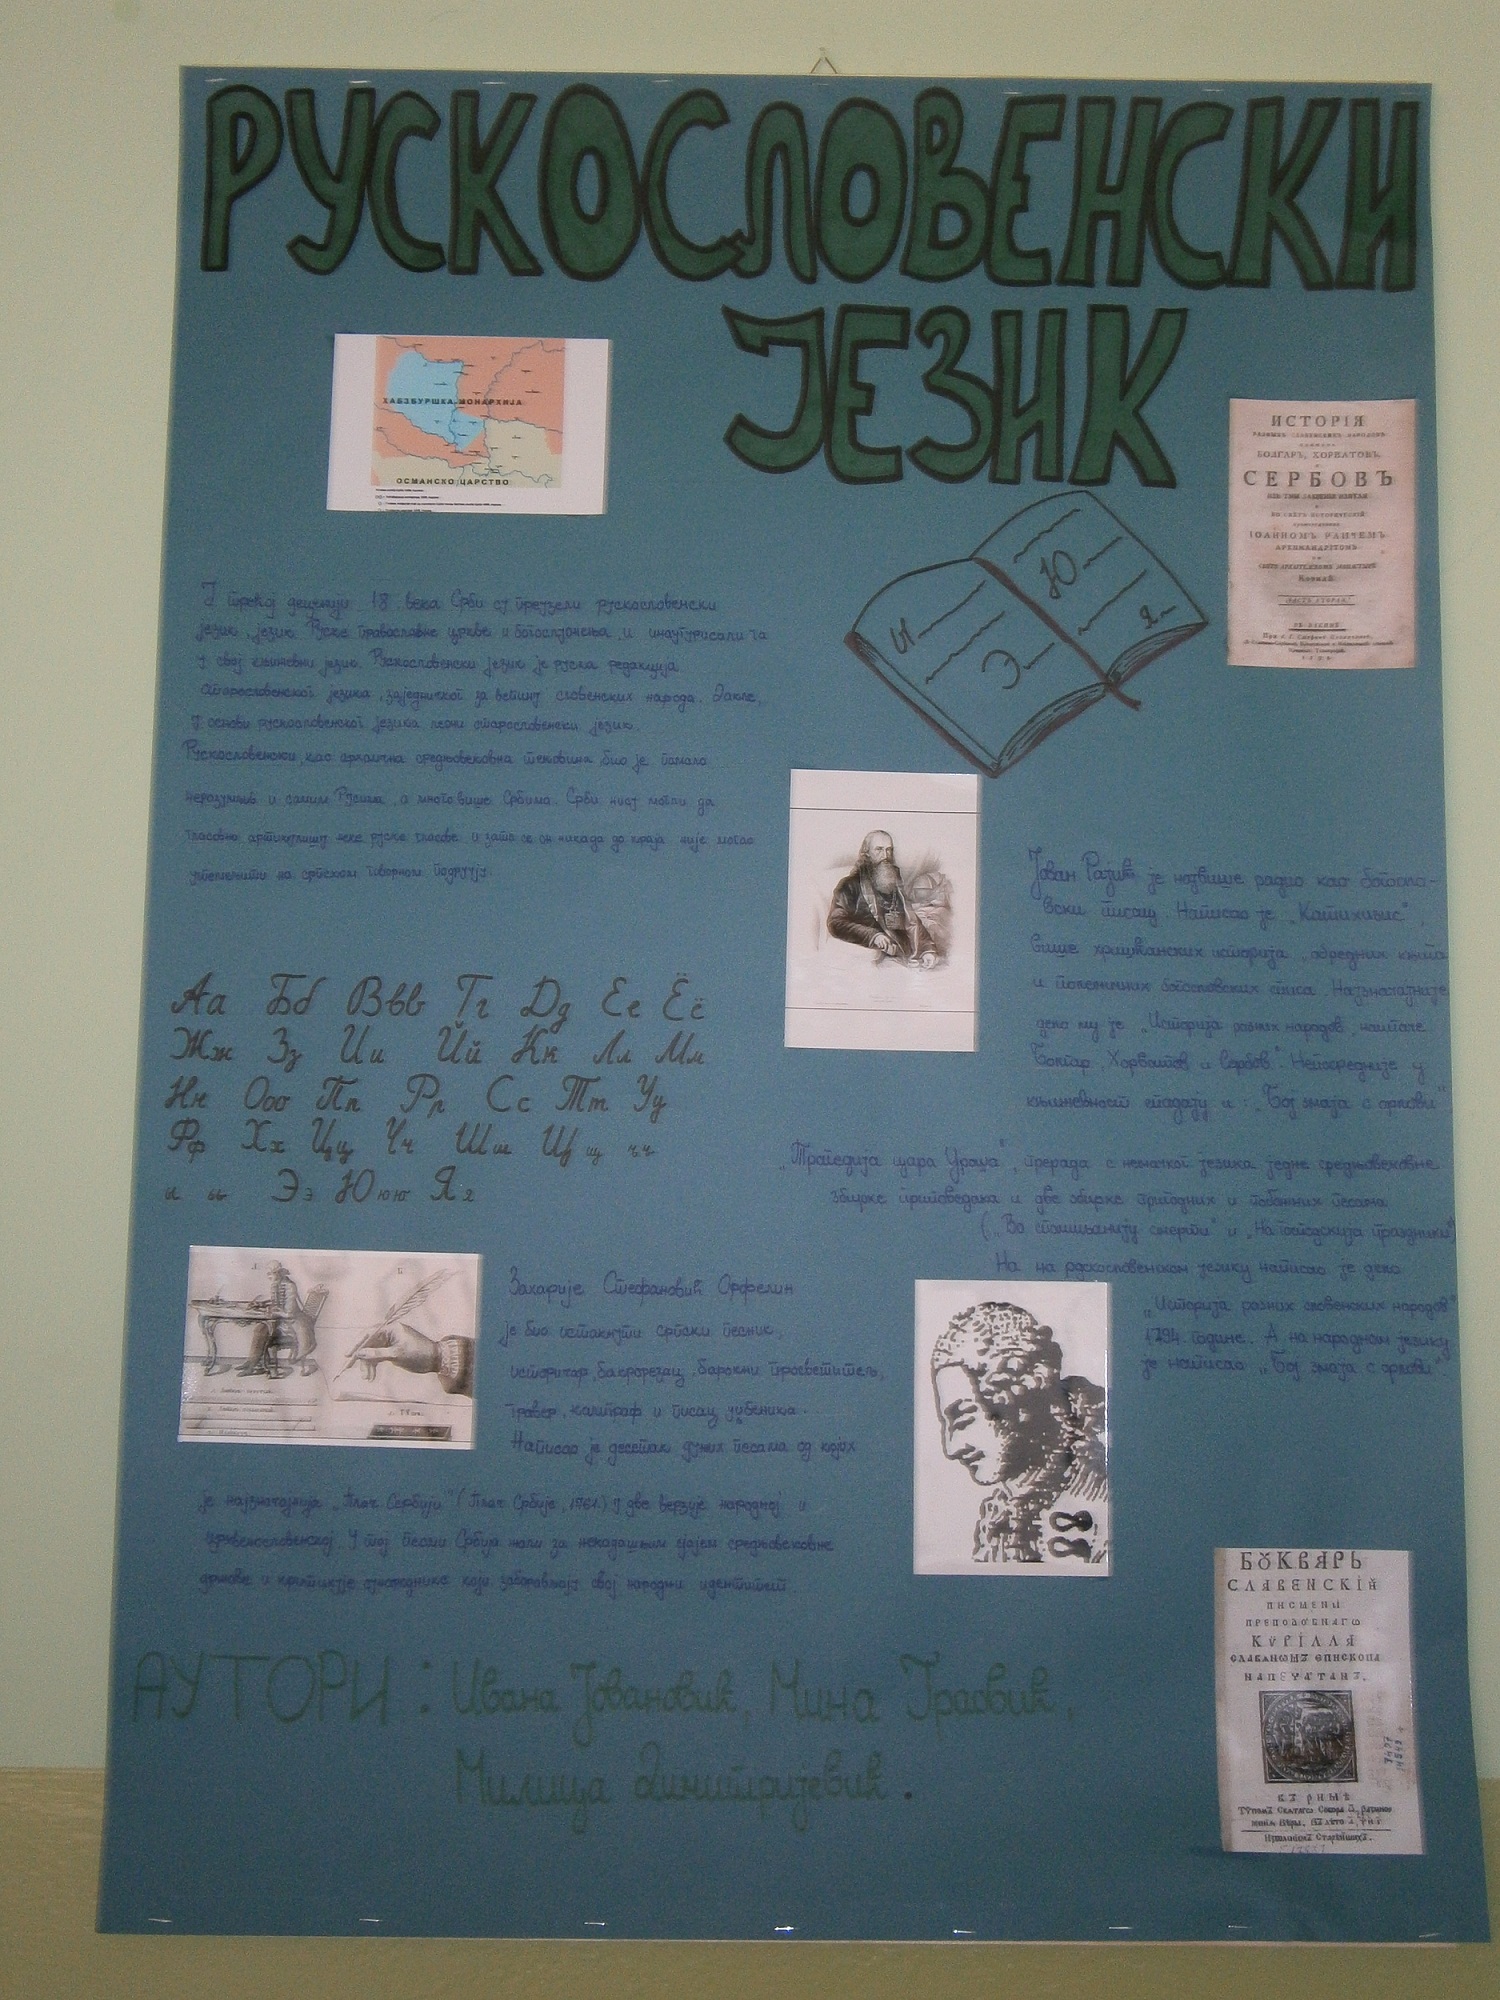 РУСКОСЛОВЕНСКИ
ЈЕЗИК
ХАБЗБУРШКА МОНАРХИЈА
ОСМАНСКО ЦАРСТВО
ИСТОРІЯ
БОЛГАРЪ, ХОРВАТОВЪ
СЕРБОВЪ
ІОАННОМЪ РАИЧЕМЪ
АРХИМАНДРІТОМЪ
ЧАСТЬ ВТОРАЯ
У трећој деценији 18. века Срби су преузели рускословенски
језик, језик Руске православне цркве и богослужења и инаугурисали га
у свој књижевни језик. Рускословенски језик је руска редакција
старословенског језика, заједничког за већину словенских народа. Дакле,
у основи рускословенског језика лежи старословенски језик.
Рускословенски, као архаична средњовековна тековина био је помало
неразумљив и самим Русима, а много више Србима. Срби нису могли да
гласовно артикулишу неке руске гласове и зато се он никада до краја није могао
утемељити на српском говорном подручју.
ы Э Ю я
Аа Бб Ввв Гг Дд Ее Ёё
Жж Зз Ии Йй Кк Лл Мм
Нн Ооо Пп Рр Сс Тт Уу
Фф Хх Цц Чч Шш Щщ ъъ
ы ьь Ээ Ююю Яя
Јован Рајић је највише радио као богосло-
вски писац. Написао је „Катихизис“,
више хришћанских историја, обредних књига
и полемичких богословских списа. Најзначајније
дело му је „Историја разних народов, најпаче
Болгар, Хорватов и Сербов“. Непосредније у
књижевност спадају и: „Бој змаја с орлови“
„Трагедија цара Уроша“, прерада с немачког језика једне средњовековне
збирке приповедака и две збирке пригодних и побожних песама
(„Во спомињанију смерти“ и „На Господскија праздники“
На на рускословенском језику написао је дело
„Историја разних словенских народов“
1794. године. А на народном језику
је написао „Бој змаја с орлови“.
Захарије Стефановић Орфелин
је био истакнути српски песник,
историчар, бакрорезац, барокни просветитељ,
гравер, калиграф и писац уџбеника.
Написао је десетак дужих песама од којих
је најзначајнија „Плач Сербији“ (Плач Србије, 1761.) у две верзије народној и
црквенословенској. У тој песми Србија жали за некадашњим сјајем средњовековне
државе и критикује сународнике који заборављају свој народни идентитет
БꙊКВАРЬ
СЛАВЕНСКІЙ
ПИСМЕНЫ
ПРЕПОДОБНАГѠ
КѴРІЛЛА
ЕПИСКОПА
АУТОРИ: Ивана Јовановић, Мина Грасвић,
Милица Димитријевић.